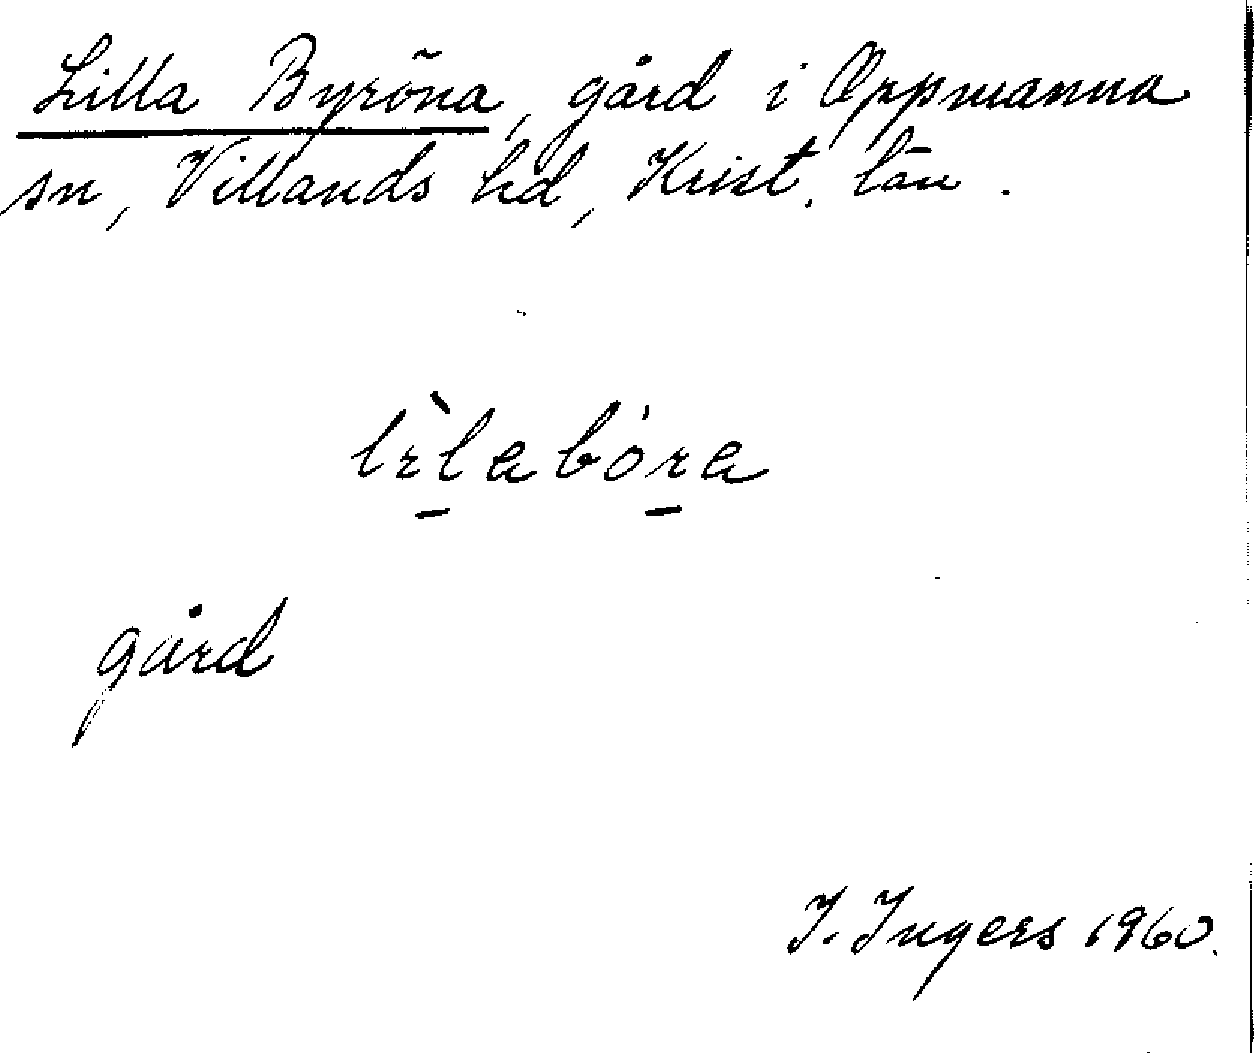 Lilla Byröna, gård i Oppmanna
sn, Villands hd, Krist. län.
lɪ̀labóra
gård
I. Ingers 1960.